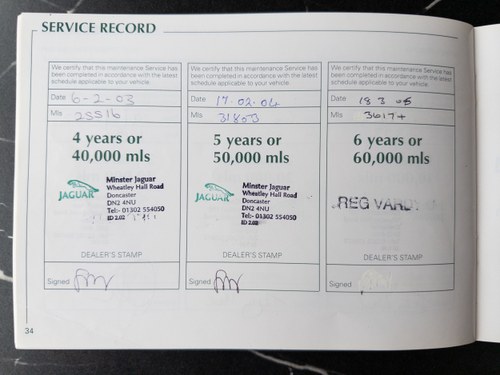 SERVICE RECORD
We certify that this maintenance Service has
been completed in accordance with the latest
schedule applicable to your vehicle.
Date 6-2-03
Mls 25516
4 years or
40,000 mls
JAGUAR
Minster Jaguar
Wheatley Hall Road
Doncaster
DN2 4NU
Tel:- 01302 554050
DEALER'S STAMP
Signed
We certify that this maintenance Service has
been completed in accordance with the latest
schedule applicable to your vehicle.
Date 17.02.04
Mls 31853
5 years or
50,000 mls
JAGUAR
Minster Jaguar
Wheatley Hall Road
Doncaster
DN2 4NU
Tel:- 01302 554050
DEALER'S STAMP
Signed
We certify that this maintenance Service has
been completed in accordance with the latest
schedule applicable to your vehicle.
Date 18 3 05
Mls
6 years or
60,000 mls
REG VARDY
DEALER'S STAMP
Signed
34